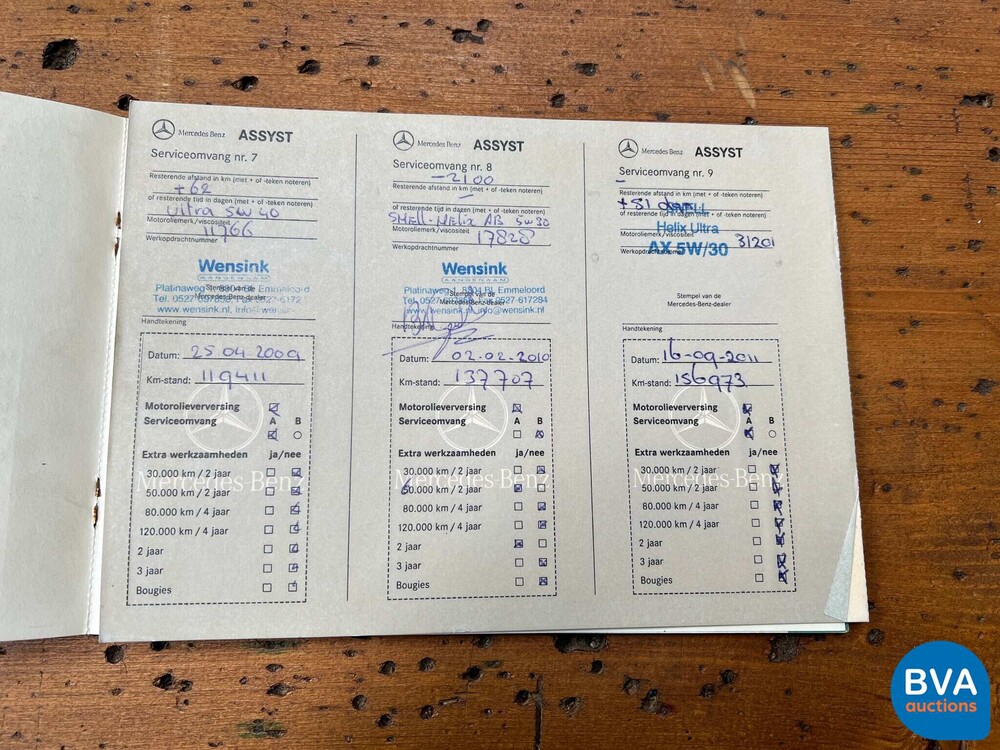 Mercedes-Benz ASSYST
Serviceomvang nr. 7
Resterende afstand in km (met + of -teken noteren)
+62
of resterende tijd in dagen (met + of -teken noteren)
Ultra 5W40
Motoroliemerk/viscositeit
11766
Werkopdrachtnummer
Wensink
Stempel van de
Mercedes-Benz-dealer
www.wensink.nl,
Handtekening
Datum: 25.04.2009
Km-stand: 119411
Motorolieverversing
Serviceomvang A B
Extra werkzaamheden ja/nee
30.000 km / 2 jaar
50.000 km / 2 jaar
80.000 km / 4 jaar
120.000 km / 4 jaar
2 jaar
3 jaar
Bougies
Mercedes-Benz
Mercedes-Benz ASSYST
Serviceomvang nr. 8
-2100
Resterende afstand in km (met + of -teken noteren)
-
of resterende tijd in dagen (met + of -teken noteren)
SHELL-HELIX AB 5W30
Motoroliemerk/viscositeit
17828
Werkopdrachtnummer
Wensink
Platinaweg 1, 8304 BL Emmeloord
Stempel van de
Mercedes-Benz-dealer
0527-617284
www.wensink.nl, info@wensink.nl
Handtekening
Datum: 02.02.2010
Km-stand: 137707
Motorolieverversing
Serviceomvang A B
Extra werkzaamheden ja/nee
30.000 km / 2 jaar
60.000 km / 2 jaar
80.000 km / 4 jaar
120.000 km / 4 jaar
2 jaar
3 jaar
Bougies
Mercedes-Benz
Mercedes-Benz ASSYST
Serviceomvang nr. 9
-
Resterende afstand in km (met + of -teken noteren)
+51
of resterende tijd in dagen (met + of -teken noteren)
SHELL
Helix Ultra
Motoroliemerk/viscositeit
AX 5W/30
31201
Werkopdrachtnummer
Stempel van de
Mercedes-Benz-dealer
Handtekening
Datum: 16-09-2011
Km-stand: 156973
Motorolieverversing
Serviceomvang A B
Extra werkzaamheden ja/nee
30.000 km / 2 jaar
50.000 km / 2 jaar
80.000 km / 4 jaar
120.000 km / 4 jaar
2 jaar
3 jaar
Bougies
Mercedes-Benz
BVA
auctions